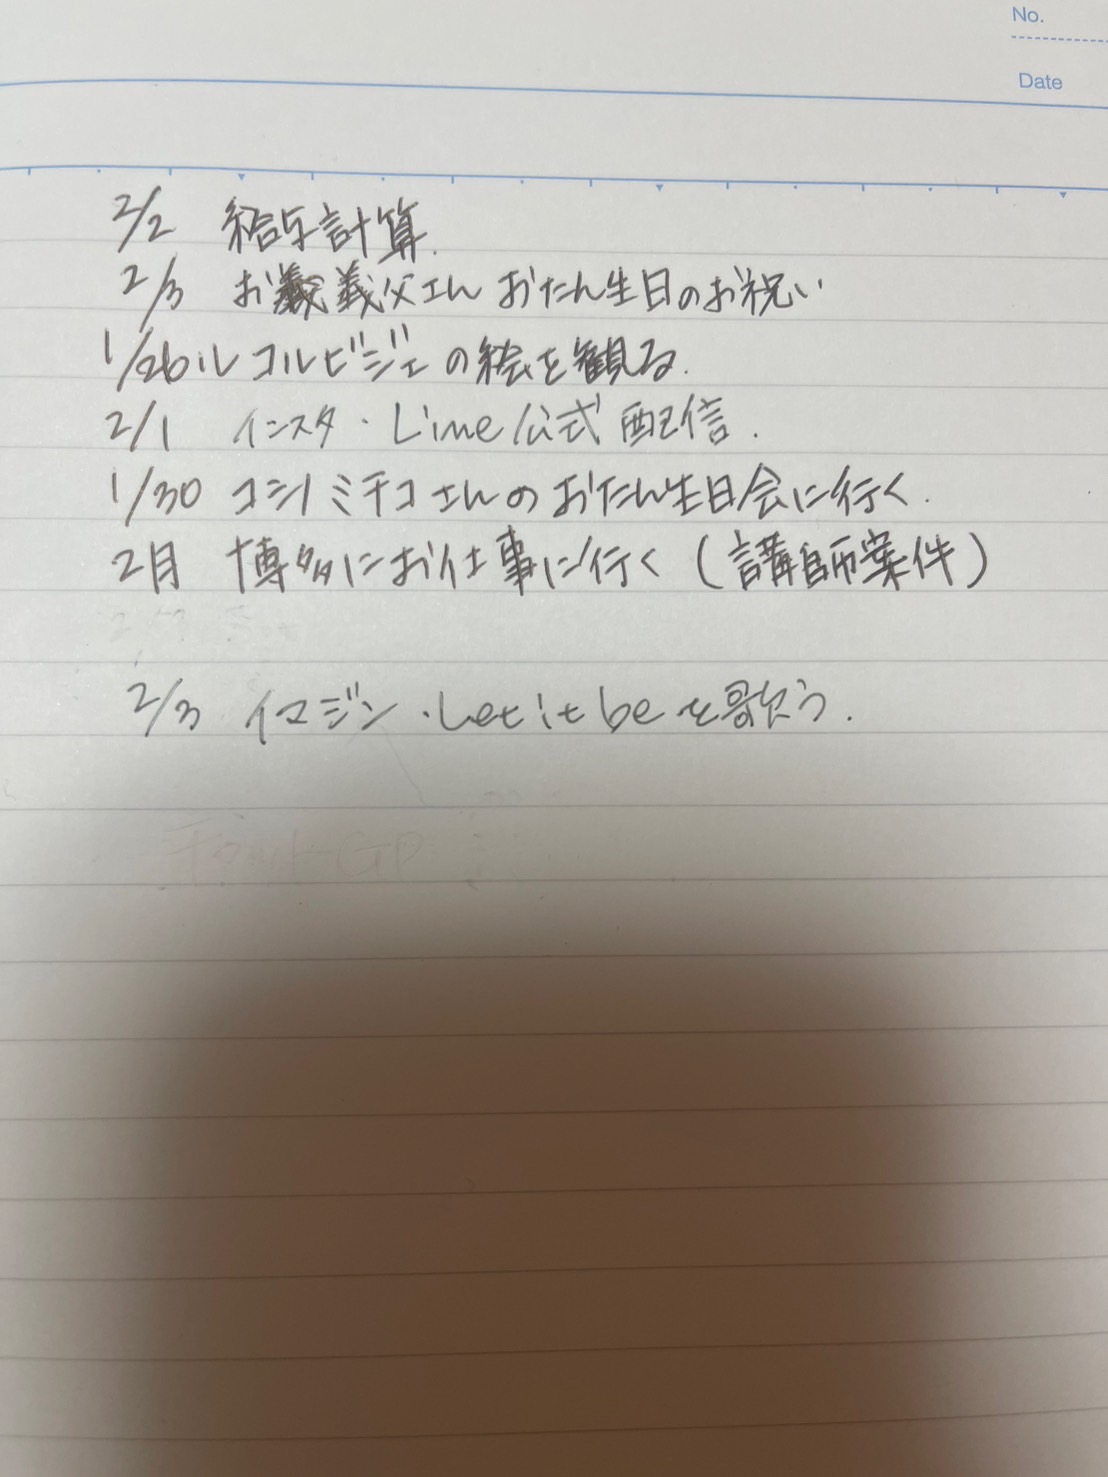 No.
Date
2/2 給与計算.
2/3 お義父さん おたん生日のお祝い
1/26 ル コルビジェの絵を観る.
2/1 インスタ・Line公式 配信.
1/30 コシノミチコさんのおたん生日会に行く.
2月 博多にお仕事に行く(講師案件)
2/3 イマジン・Let it be を歌う.
チャットGP